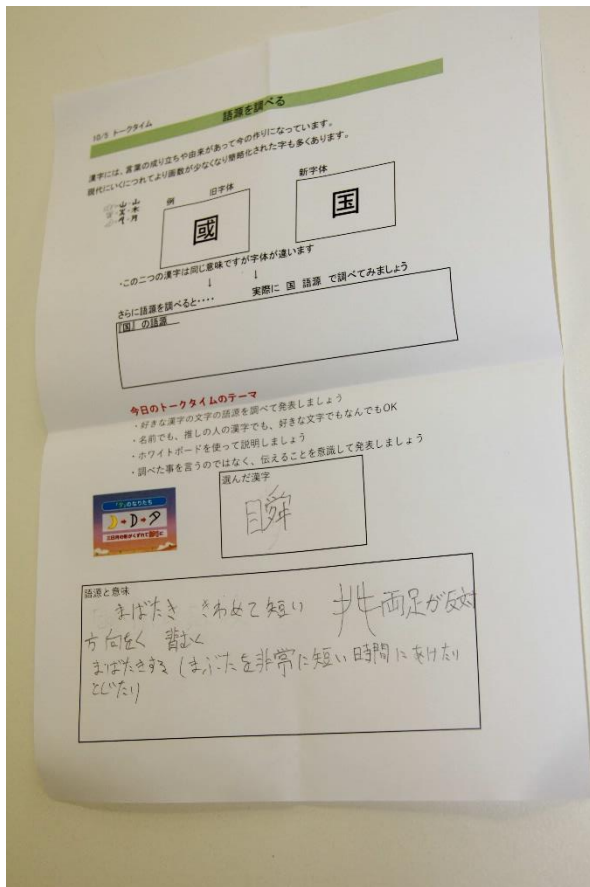 10/5 トークタイム
語源を調べる
漢字には、言葉の成り立ちや由来があって今の作りになっています。
現代にいくにつれてより画数が少なくなり簡略化された字も多くあります。
山 山
木
月
例 旧字体 新字体
國 国
・この二つの漢字は同じ意味ですが字体が違います
↓ ↓
さらに語源を調べると・・・・ 実際に 国 語源 で調べてみましょう
『国』の語源
今日のトークタイムのテーマ
・好きな漢字の文字の語源を調べて発表しましょう
・名前でも、推しの人の漢字でも、好きな文字でもなんでもOK
・ホワイトボードを使って説明しましょう
・調べた事を言うのではなく、伝えることを意識して発表しましょう
のなりたち
選んだ漢字
瞬
語源と意味
まばたき きわめて短い 両足が反対
方向をく
まばたきする(まぶたを非常に短い時間にあけたり
とじたり)